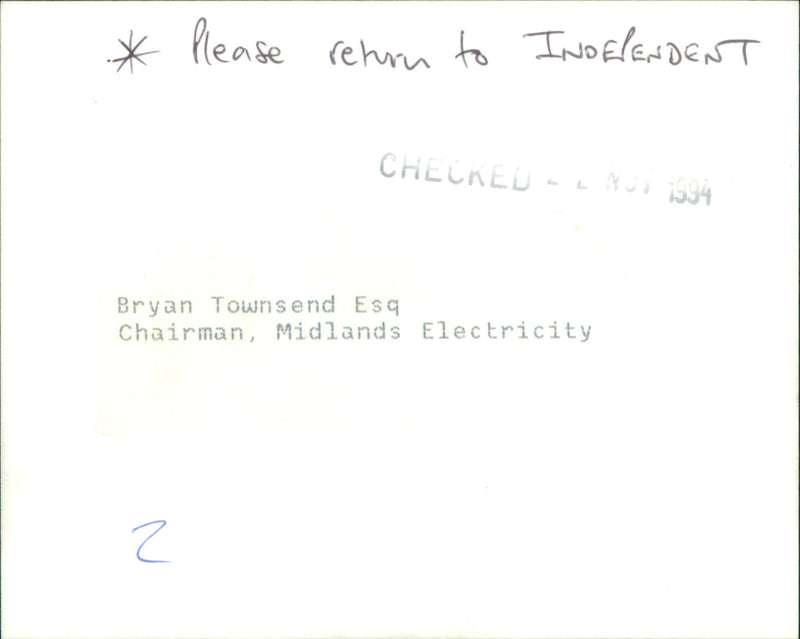 * Please return to INDEPENDENT
CHECKED - 2 NOV 1994
Bryan Townsend Esq
Chairman, Midlands Electricity
2